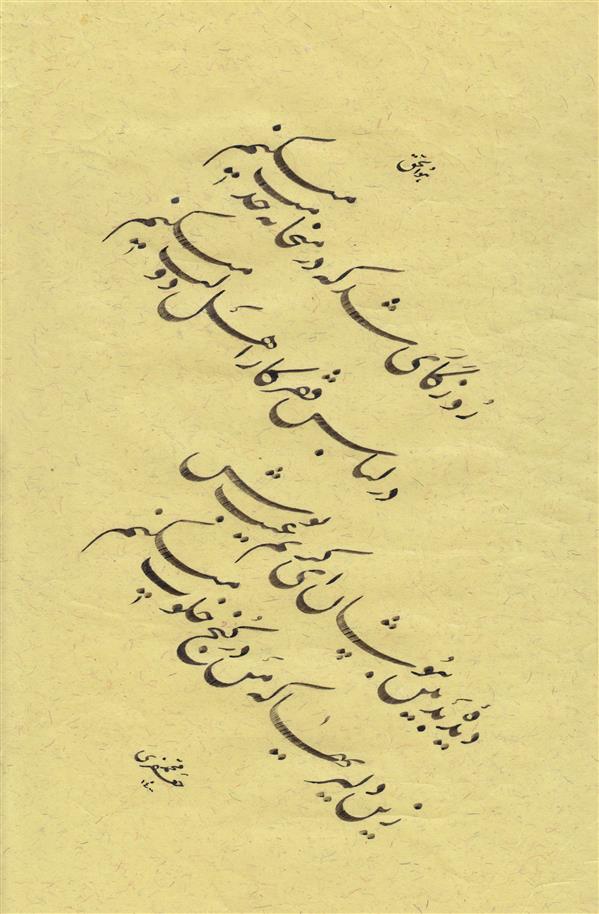 هوالحق
روزگاری شد که در میخانه خدمت میکنم
در لباس فقر کار اهل دولت میکنم
دیدهٔ بدبین بپوشان ای کریم عیب پوش
زین دلیریها که من در کنج خلوت میکنم